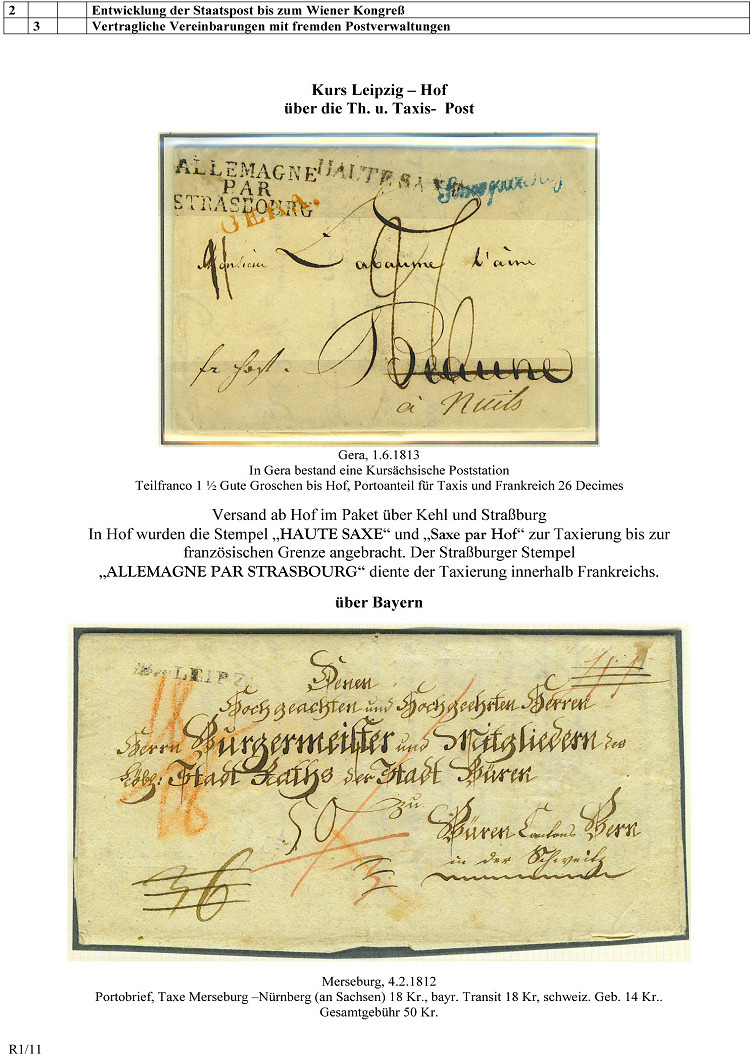 2 Entwicklung der Staatspost bis zum Wiener Kongreß
3 Vertragliche Vereinbarungen mit fremden Postverwaltungen
Kurs Leipzig – Hof
über die Th. u. Taxis- Post
ALLEMAGNE
PAR
STRASBOURG
HAUTE SAXE
GERA.
Monsieur Labaume l'ainé
fr. hof.
Beaune
à Nuits
Gera, 1.6.1813
In Gera bestand eine Kursächsische Poststation
Teilfranco 1 ½ Gute Groschen bis Hof, Portoanteil für Taxis und Frankreich 26 Decimes
Versand ab Hof im Paket über Kehl und Straßburg
In Hof wurden die Stempel „HAUTE SAXE“ und „Saxe par Hof“ zur Taxierung bis zur
französischen Grenze angebracht. Der Straßburger Stempel
„ALLEMAGNE PAR STRASBOURG“ diente der Taxierung innerhalb Frankreichs.
über Bayern
LEIPZ
Denen
Hochgeachten und Hochgeehrten Herren
Herrn Burgermeister und Mitgliedern des
Löbl: Stadt Raths der Stadt Büren
zu
50
Büren Cantons Bern
in der Schweitz
36
Merseburg, 4.2.1812
Portobrief, Taxe Merseburg –Nürnberg (an Sachsen) 18 Kr., bayr. Transit 18 Kr, schweiz. Geb. 14 Kr..
Gesamtgebühr 50 Kr.
R1/11